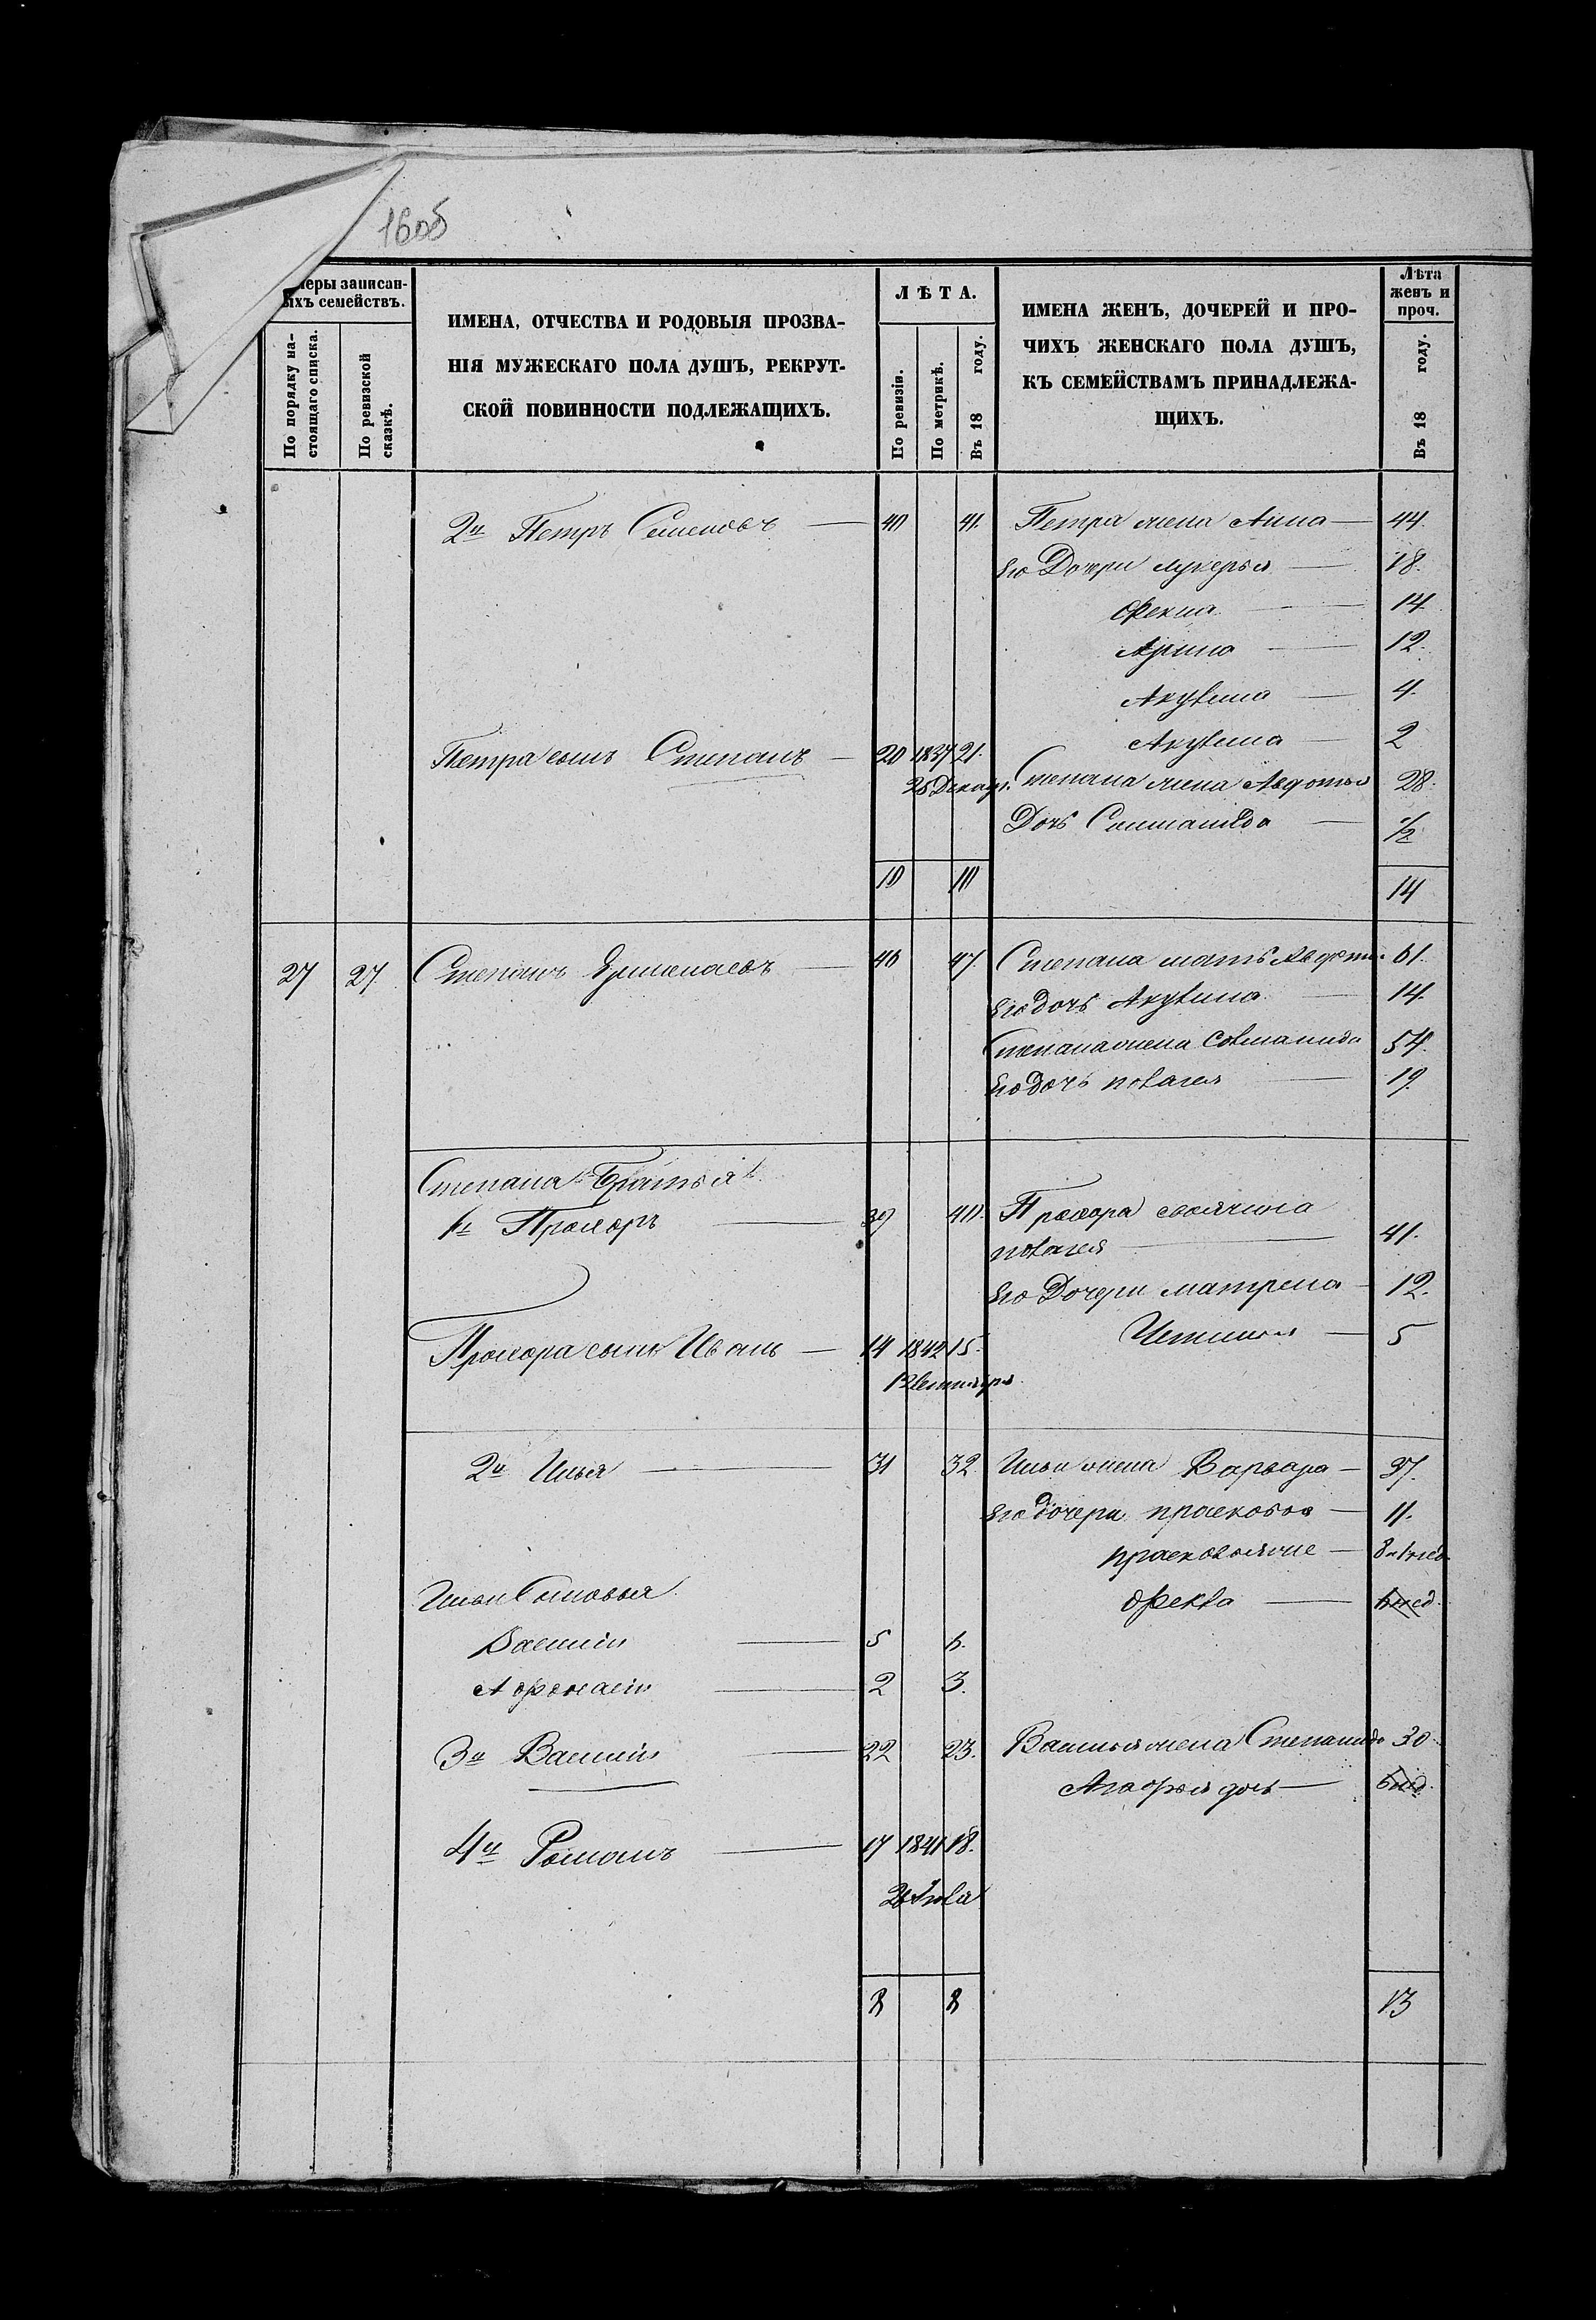 16об
меры записан-
ыхъ семействъ.
По порядку на-
стоящаго списка.
По ревизской
сказкѣ.
ИМЕНА, ОТЧЕСТВА И РОДОВЫЯ ПРОЗВА-
НІЯ МУЖЕСКАГО ПОЛА ДУШЪ, РЕКРУТ-
СКОЙ ПОВИННОСТИ ПОДЛЕЖАЩИХЪ.
ЛѢТА.
По ревизіи.
По метрикѣ.
Въ 18 году.
ИМЕНА ЖЕНЪ, ДОЧЕРЕЙ И ПРО-
ЧИХЪ ЖЕНСКАГО ПОЛА ДУШЪ,
КЪ СЕМЕЙСТВАМЪ ПРИНАДЛЕЖА-
ЩИХЪ.
Лѣта
женъ и
проч.
Въ 18 году.
2й Петръ Семеновъ 40 41. Петра жена Анна 44.
Его Дочери лукерья 18.
Фекла 14
Арина 12.
Акулина 4.
Акулина 2
Петра сынъ Степанъ 20 1837 21.
25 Декаб. Степана жена Авдотья 28.
Дочь Степанида 1/2
10 10 14
27 27. Степанъ 46 47. Степана мать 61.
Его дочь Акулина 14.
Степана жена 54.
Его дочь пелагея 19.
Степана Братья
1й Прохоръ 39 40. Прохора
пелагея 41.
Его Дочери матрена 12.
Прохора сынъ Иванъ 14 1842 15. 5
12
2й Илья 31 32. Ильи жена Варвара 37.
Его дочери прасковья 11.
прасковья же
Ильи Сыновья Фекла 6 нед.
Василій 5 6.
Афонасій 2 3.
3й Василій 22 23. Василья жена Степанида 30
Агафья дочь 6 нед.
4й Романъ 17 1841 18.
Іюля
8 8 13